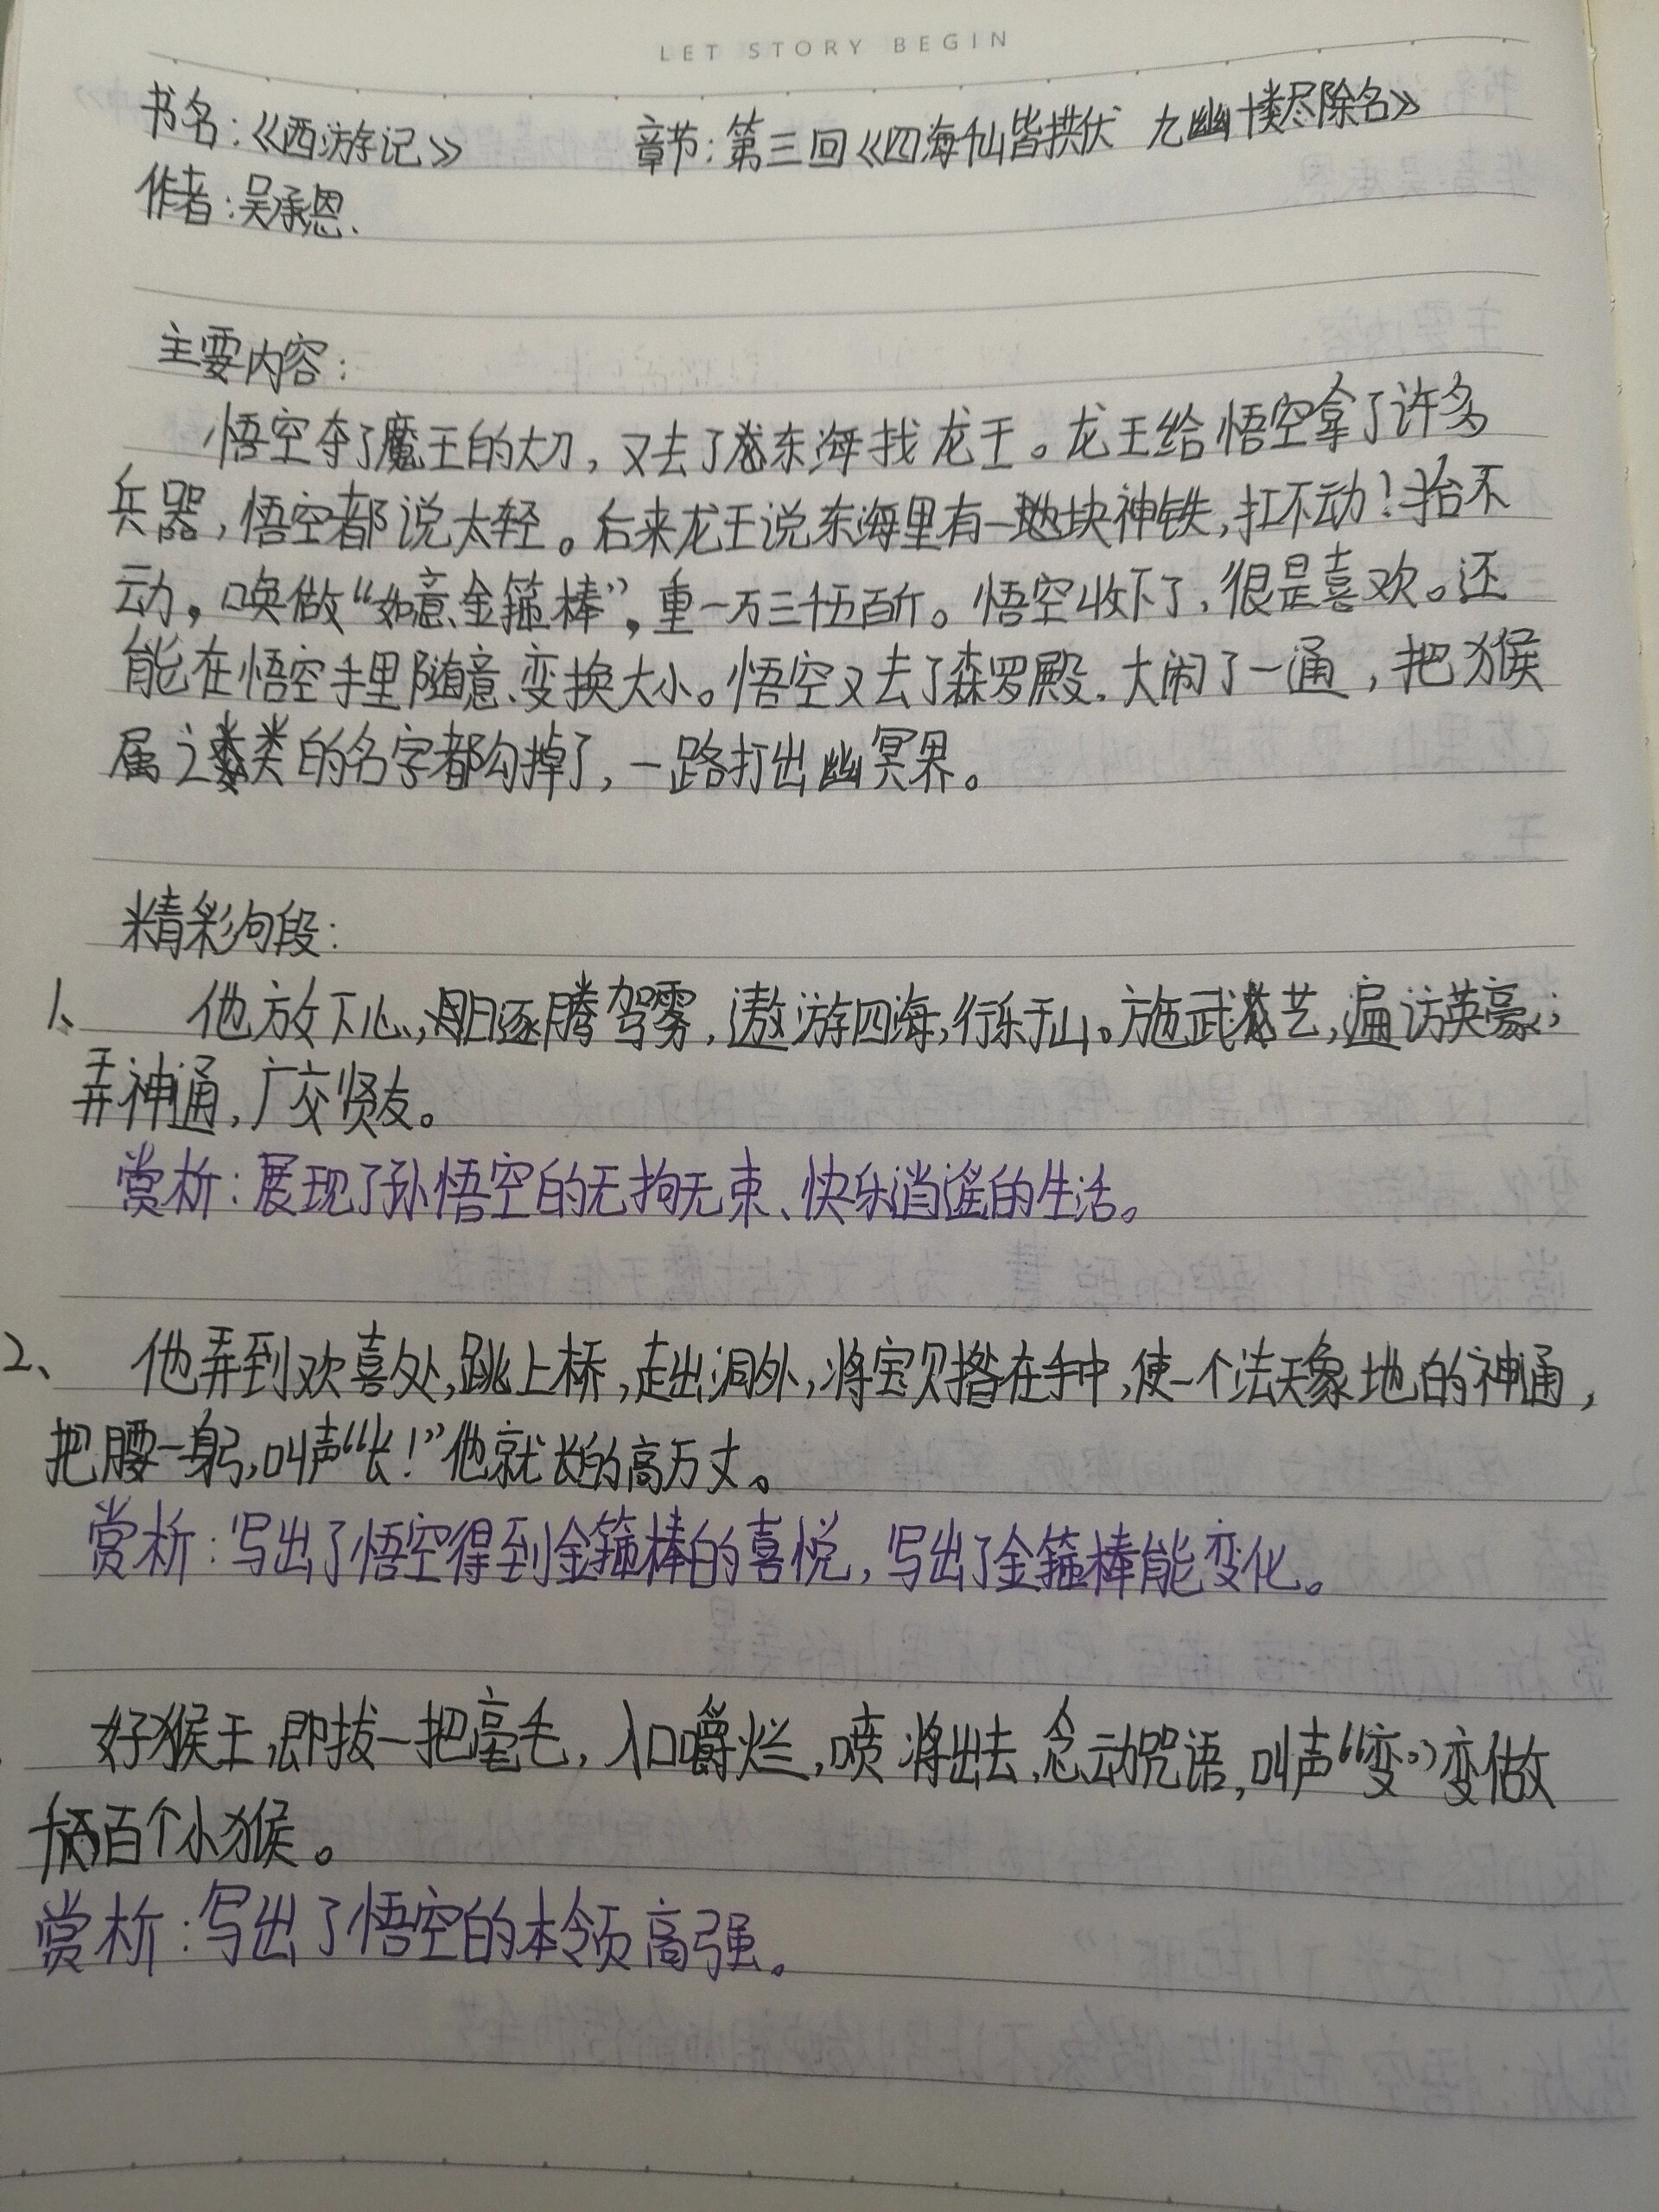 LET STORY BEGIN
书名：《西游记》 章节：第三回《四海千山皆拱伏 九幽十类尽除名》
作者：吴承恩
主要内容：
悟空夺了魔王的大刀，又去了东海找龙王。龙王给悟空拿了许多
兵器，悟空都说太轻。后来龙王说东海里有一块神铁，扛不动！抬不
动，唤做“如意金箍棒”，重一万三千五百斤。悟空收下了，很是喜欢。还
能在悟空手里随意变换大小。悟空又去了森罗殿，大闹了一通，把猴
属之类的名字都勾掉了，一路打出幽冥界。
精彩句段：
1、 他放下心，日逐腾驾雾，遨游四海，行乐千山。施武艺，遍访英豪；
弄神通，广交贤友。
赏析：展现了孙悟空的无拘无束、快乐逍遥的生活。
2、 他弄到欢喜处，跳上桥，走出洞外，将宝贝揝在手中，使一个法天象地的神通，
把腰一躬，叫声“长！”他就长的高万丈。
赏析：写出了悟空得到金箍棒的喜悦，写出了金箍棒能变化。
好猴王，即拔一把毫毛，入口嚼烂，喷将出去，念动咒语，叫声“变”变做
千百个小猴。
赏析：写出了悟空的本领高强。